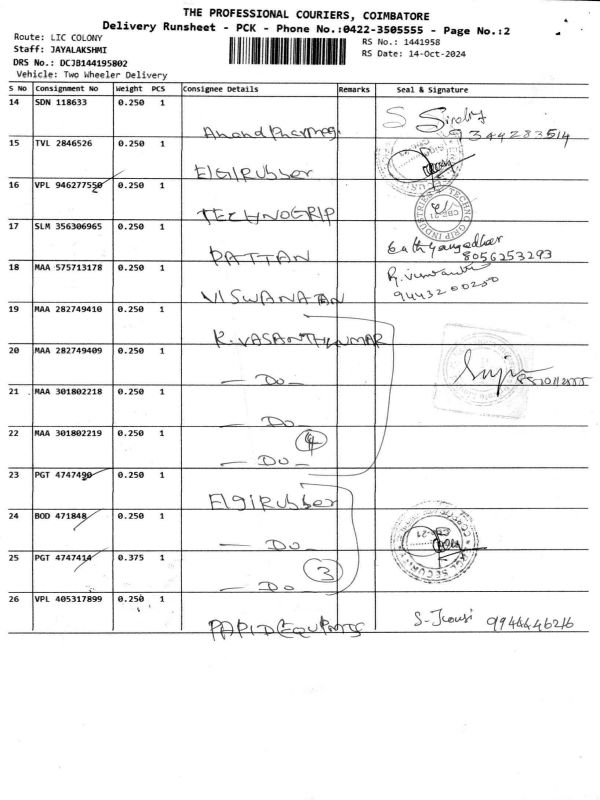 THE PROFESSIONAL COURIERS, COIMBATORE
Delivery Runsheet - PCK - Phone No.:0422-3505555 - Page No.:2
Route: LIC COLONY
RS No.: 1441958
Staff: JAYALAKSHMI
RS Date: 14-Oct-2024
DRS No.: DCJB144195802
Vehicle: Two Wheeler Delivery
S No Consignment No Weight PCS Consignee Details Remarks Seal & Signature
14 SDN 118633 0.250 1
Anand Pharmacy
9344283514
15 TVL 2846526 0.250 1
Elgi Rubber
16 VPL 946277550 0.250 1
TECHNOGRIP
TECHNO GRIP INDUSTRIES
CBE-21
17 SLM 356306965 0.250 1
PATTAN
8056253293
18 MAA 575713178 0.250 1
VISWANATAN
9443200250
19 MAA 282749410 0.250 1
K.VASANTHKUMAR
20 MAA 282749409 0.250 1
— Do —
21 MAA 301802218 0.250 1
— Do —
22 MAA 301802219 0.250 1
4
— Do —
23 PGT 4747490 0.250 1
Elgi Rubber
24 BOD 471848 0.250 1
— Do —
25 PGT 4747414 0.375 1
3
— Do —
26 VPL 405317899 0.250 1
9944446216